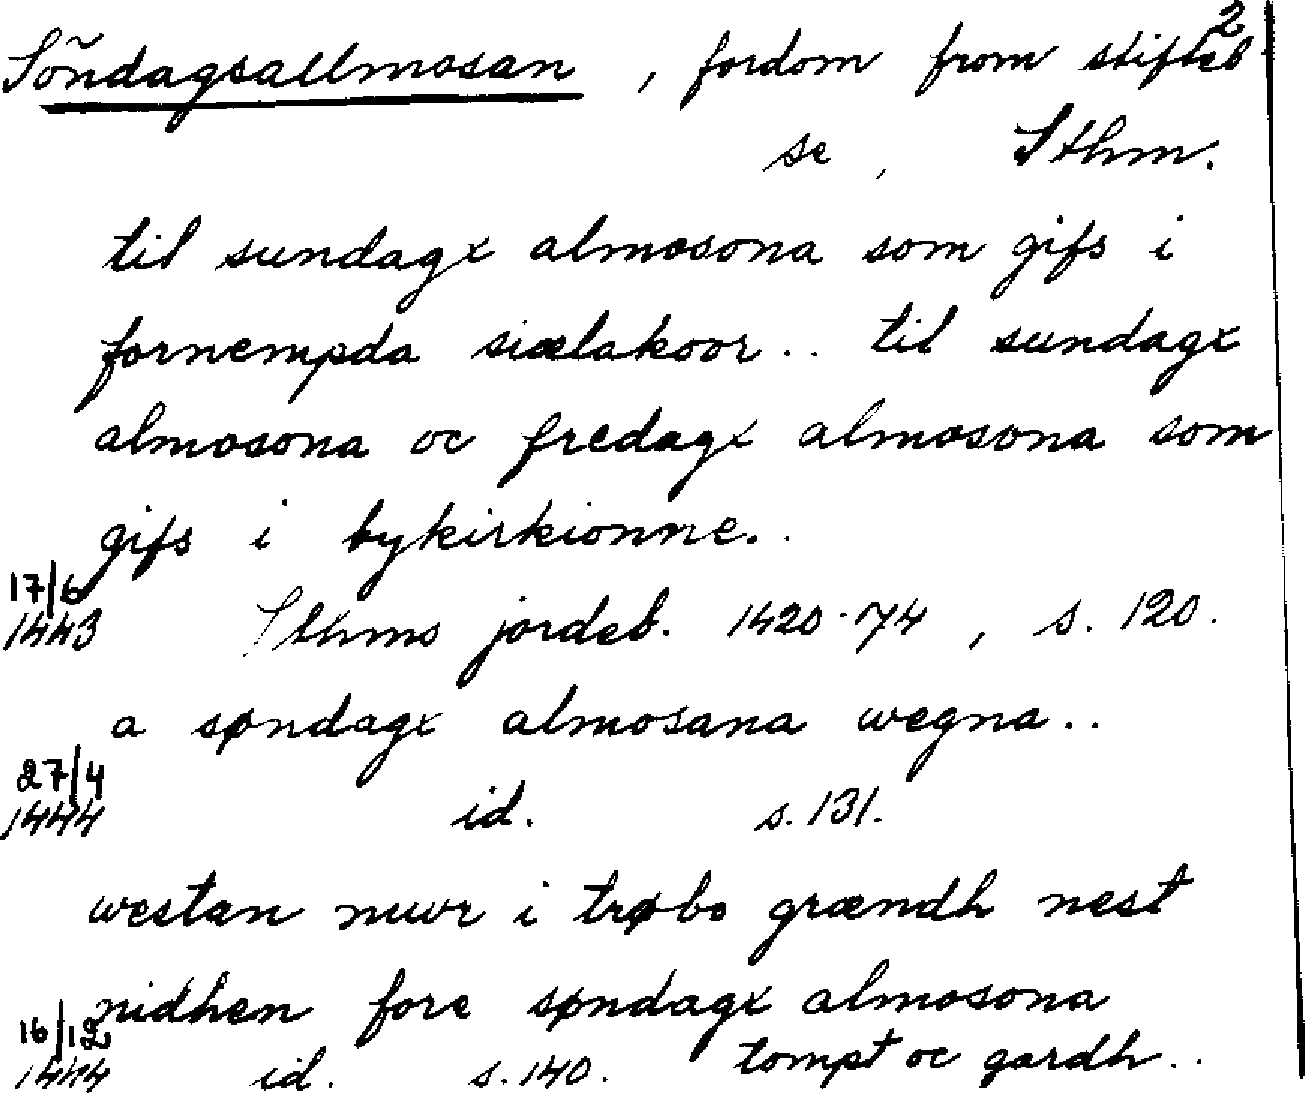 2
Söndagsallmosan, fordom from stiftel-
se, Sthm.
til sundagx almosona som gifs i
fornempda siælakoor.. til sundagx
almosona oc fredagx almosona som
gifs i bykirkionne..
17/6
1443 Sthms jordeb. 1420-74, s. 120.
a søndagx almosana wegna..
27/4
1444 id. s. 131.
westan mwr i trøbo grændh nest
nidhen fore søndagx almosona
16/12 tompt oc gardh..
1444 id. s. 140.